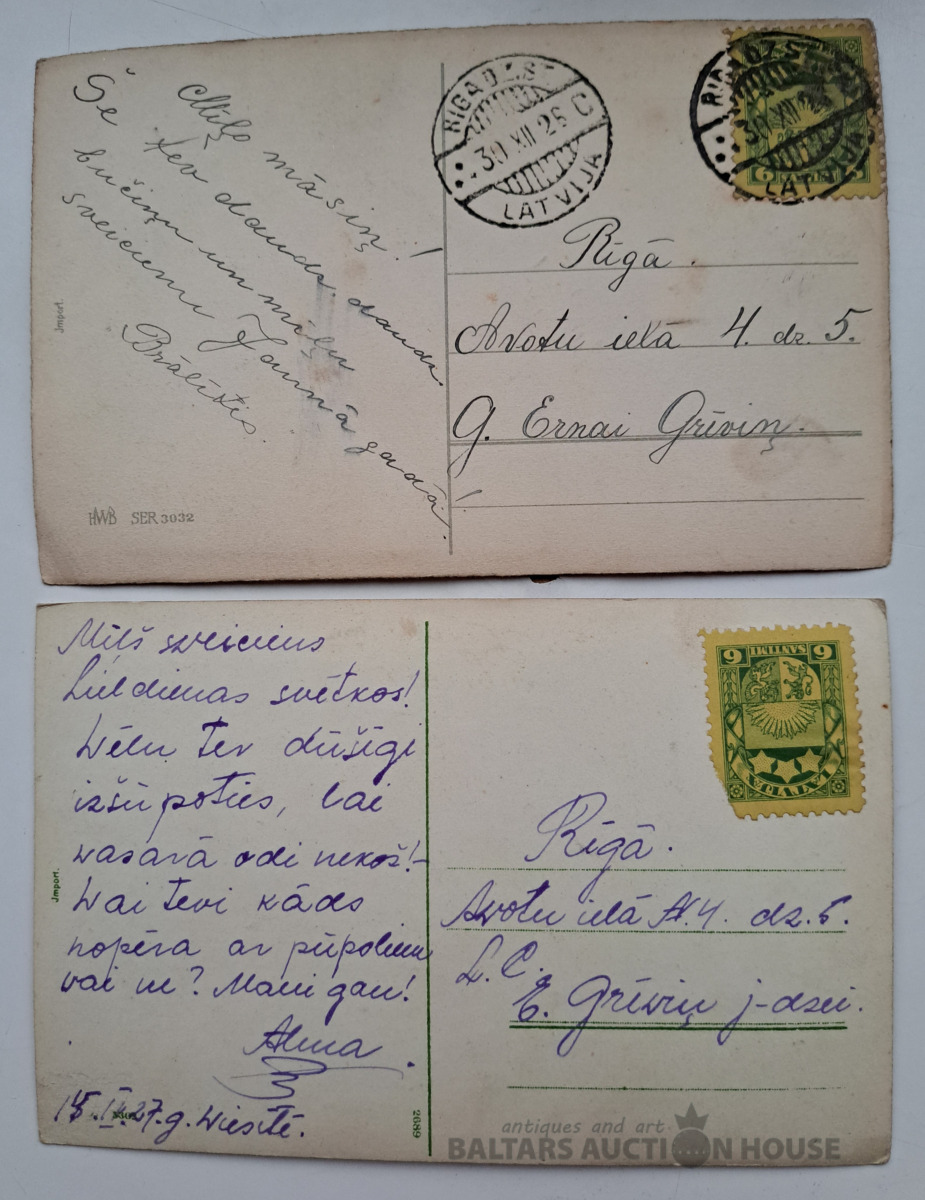 Mīļo māsiņ!
Še tev daudz, daudz
bučiņu un mīļu
sveicienu Jaunā gadā!
Brālītis.
Jmport.
HWB SER 3032
RIGA DZ.ST. C
30 XII 26
LATVIJA
RIGA DZ.ST.
30 XII
LATVIJA
Rīgā.
Avotu ielā 4. dz. 5.
G. Ernai Grīviņ.
Mīļš sveiciens
Lieldienas svētkos!
Wēlu Tev dūšīgi
izšūpoties, lai
wasarā odi nekož!-
Wai Tevi kāds
nopēra ar pūpoliem
vai ne? Mani gan!
Alma
27.g. Wiesītē.
Jmport.
2689
6 SANTIMI 6
LATVIJA
Rīgā.
Awotu ielā №.4. dz. 5.
L. C.
E. Grīwiņ j-dzei.
antiques and art
BALTARS AUCTION HOUSE